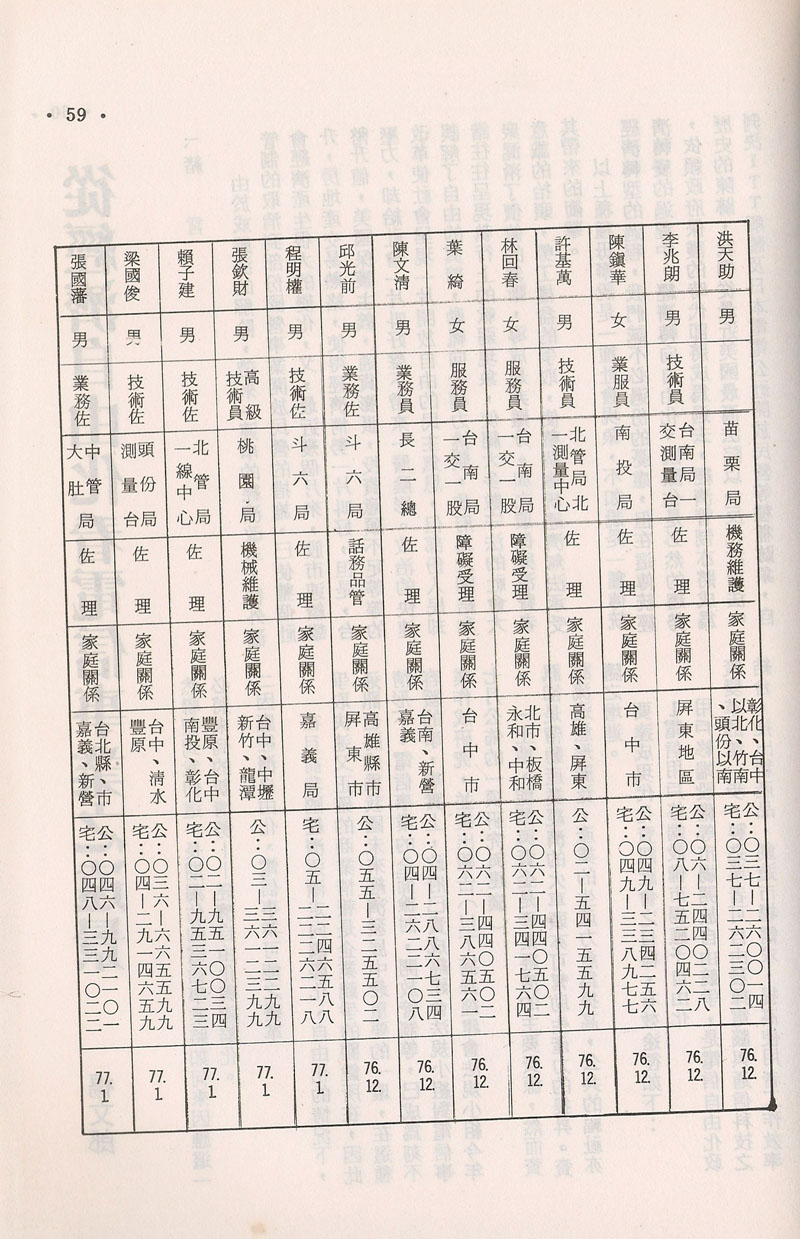 • 59 •
洪天助
男
苗栗局
機務維護
家庭關係
彰化、台中
以北、竹南
、頭份以南
公：〇三七—二六〇〇一四
宅：〇三七—二六二三〇二
76.
12.
李兆朗
男
技術員
台南局一
交測量台
佐理
家庭關係
屏東地區
公：〇六—二四四〇二二八
宅：〇八—七五二〇四六二
76.
12.
陳鎭華
女
業服員
南投局
佐理
家庭關係
台中市
公：〇四九—二三四二五六
宅：〇四九—三三八九七七
76.
12.
許基萬
男
技術員
北管局北
一測量中心
佐理
家庭關係
高雄、屏東
公：〇二—五四一五五九九
76.
12.
林回春
女
服務員
台南局
一交一股
障礙受理
家庭關係
北市、板橋
永和、中和
公：〇六二—四四〇五〇二
宅：〇六二—三四一七六四
76.
12.
葉綺
女
服務員
台南局
一交一股
障礙受理
家庭關係
台中市
公：〇六二—四四〇五〇二
宅：〇六二—三八六五六一
76.
12.
陳文清
男
業務員
長二總
佐理
家庭關係
台南、新營
嘉義
公：〇四—二八八六七三四
宅：〇四—二六二二一〇八
76.
12.
邱光前
男
業務佐
斗六局
話務品管
家庭關係
高雄縣市
屏東市
公：〇五五—三二五五〇二
76.
12.
程明權
男
技術佐
斗六局
佐理
家庭關係
嘉義局
宅：〇五—二二四六五八八
二二二六二一八
77.
1.
張欽財
男
高級
技術員
桃園局
機械維護
家庭關係
台中、中壢
新竹、龍潭
公：〇三—三六一二二九九
三六一二三九九
77.
1.
賴子建
男
技術佐
北管局
一線中心
佐理
家庭關係
豐原、台中
南投、彰化
公：〇二—九五一〇〇三四
宅：〇二—九五三六七二三
77.
1.
梁國俊
男
技術佐
頭份局
測量台
佐理
家庭關係
台中、清水
豐原
公：〇三六—六六五五九九
宅：〇四—二九一四六五九
77.
1.
張國藩
男
業務佐
中管局
大肚
佐理
家庭關係
台北縣、市
嘉義、新營
公：〇四六—九九二一〇一
宅：〇四八—三三一〇二二
77.
1.